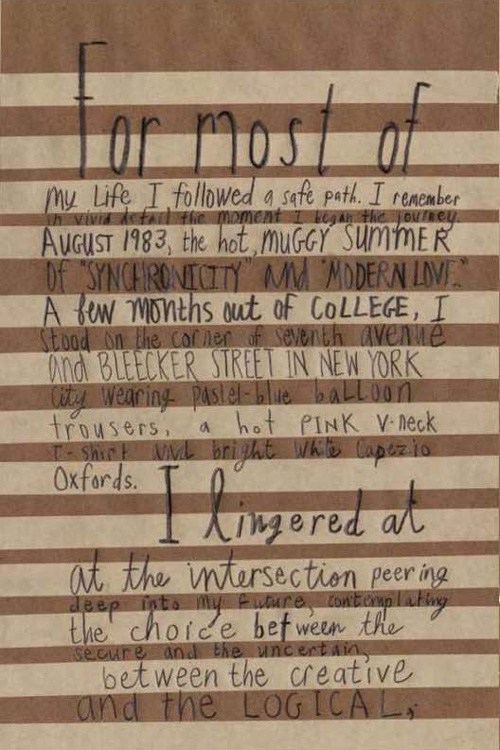 For most of
my Life I followed a safe path. I remember
in vivid detail the moment I began the journey.
AUGUST 1983, the hot, MUGGY SUMMER
OF "SYNCHRONICITY" and "MODERN LOVE."
A few months out of COLLEGE, I
stood on the corner of seventh avenue
and BLEECKER STREET IN NEW YORK
City wearing pastel-blue balloon
trousers, a hot PINK V-neck
T-shirt and bright white Capezio
Oxfords.
I lingered at
at the intersection peering
deep into my Future, contemplating
the choice between the
secure and the uncertain,
between the creative
and the LOGICAL,